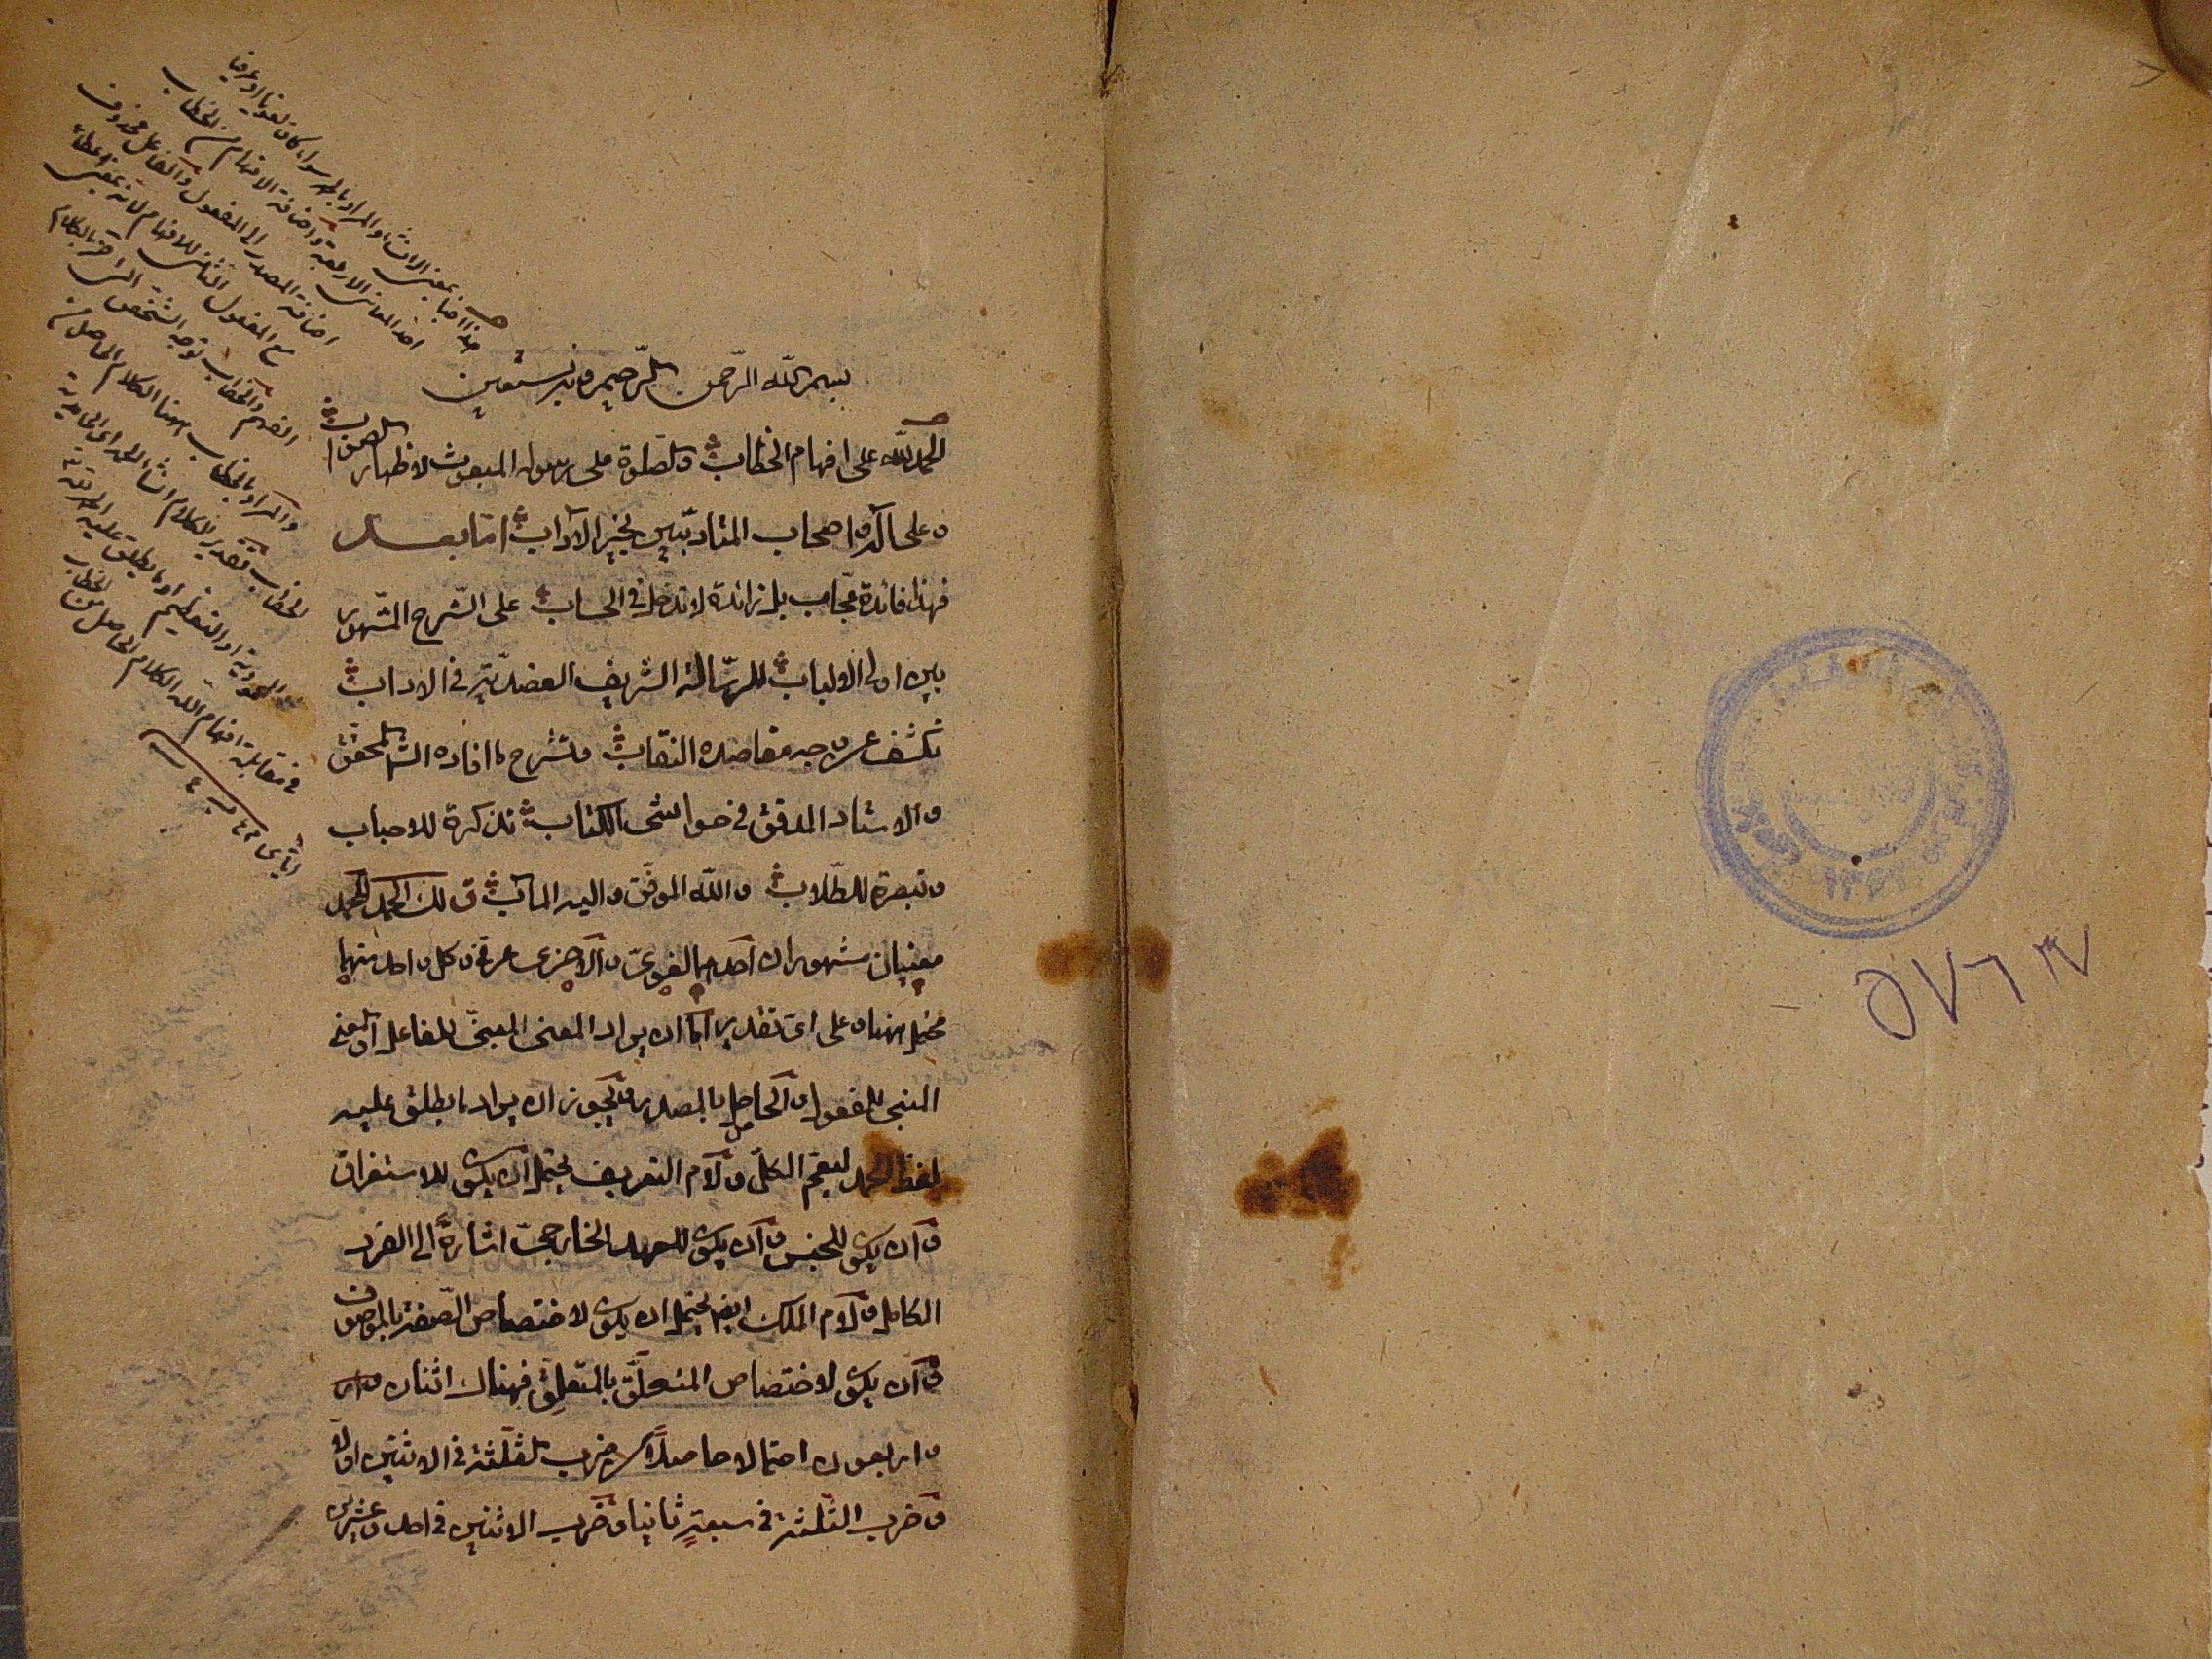 بسم الله الرحمن الرحيم وبه نستعين
الحمد لله على افهام الخطاب والصلوة على رسوله المبعوث لاظهار الصواب
وعلى آله واصحاب المتادبين بخير الآداب اما بعد
فهذا فائدة عجاب بل زائدة لا تدخل في الحساب على الشرح المشهور
بين اولى الالباب للرسالة الشريف العضدية في الاداب
تكشف عن وجه مقاصده النقاب وتشرح ما افاده الش المحقق
والاستاد المدقق في حواشى الكتاب تذكرة للاحباب
وتبصرة للطلاب والله الموفق واليه المآب ق لك الحمد للحمد
معنيان مشهوران احدهما لغوى والآخر عرفى وكل واحد منهما
محتمل ههنا وعلى اى تقدير اما ان يراد المعنى المبنى للفاعل او المعنى
المبنى للمفعول او الحاصل بالمصدر ويجوز ان يراد ما يطلق عليه
لفظ الحمد ليعم الكل ولام التعريف يحتمل ان يكون للاستغراق
وان يكون للجنس وان يكون للعهد الخارجى اشارة الى الفرد
الكامل ولام الملك ايضا يحتمل ان يكون لاختصاص الصفة بالموصوف
وان يكون لاختصاص المتعلق بالمتعلق فهناك اثنان
واربعون احتمالا حاصلا من ضرب الثلثة في الاثنين اولا
وضرب الثلثة في سبعة ثانيا وضرب الاثنين في احد وعشرين
هذا ايضا بمعنى الانشاء والمراد بالحمد سواء كان لغويا او عرفيا
احد المعانى الاربعة واضافة الافهام الى الخطاب
اضافة المصدر الى المفعول والفاعل محذوف
مع المفعول الثانى للافهام لانه بمعنى اعطاء
الفهم والخطاب توجه الشخص الى آخر بالكلام
والمراد بالخطاب ههنا الكلام الحاصل من
الخطاب تقدير الكلام انشاء الحمد اى الحامدية
او المحمودية او التعظيم او ما يطلق عليه
في مقابلة افهام الله الكلام الحاصل من الخطاب
١٣٤٦